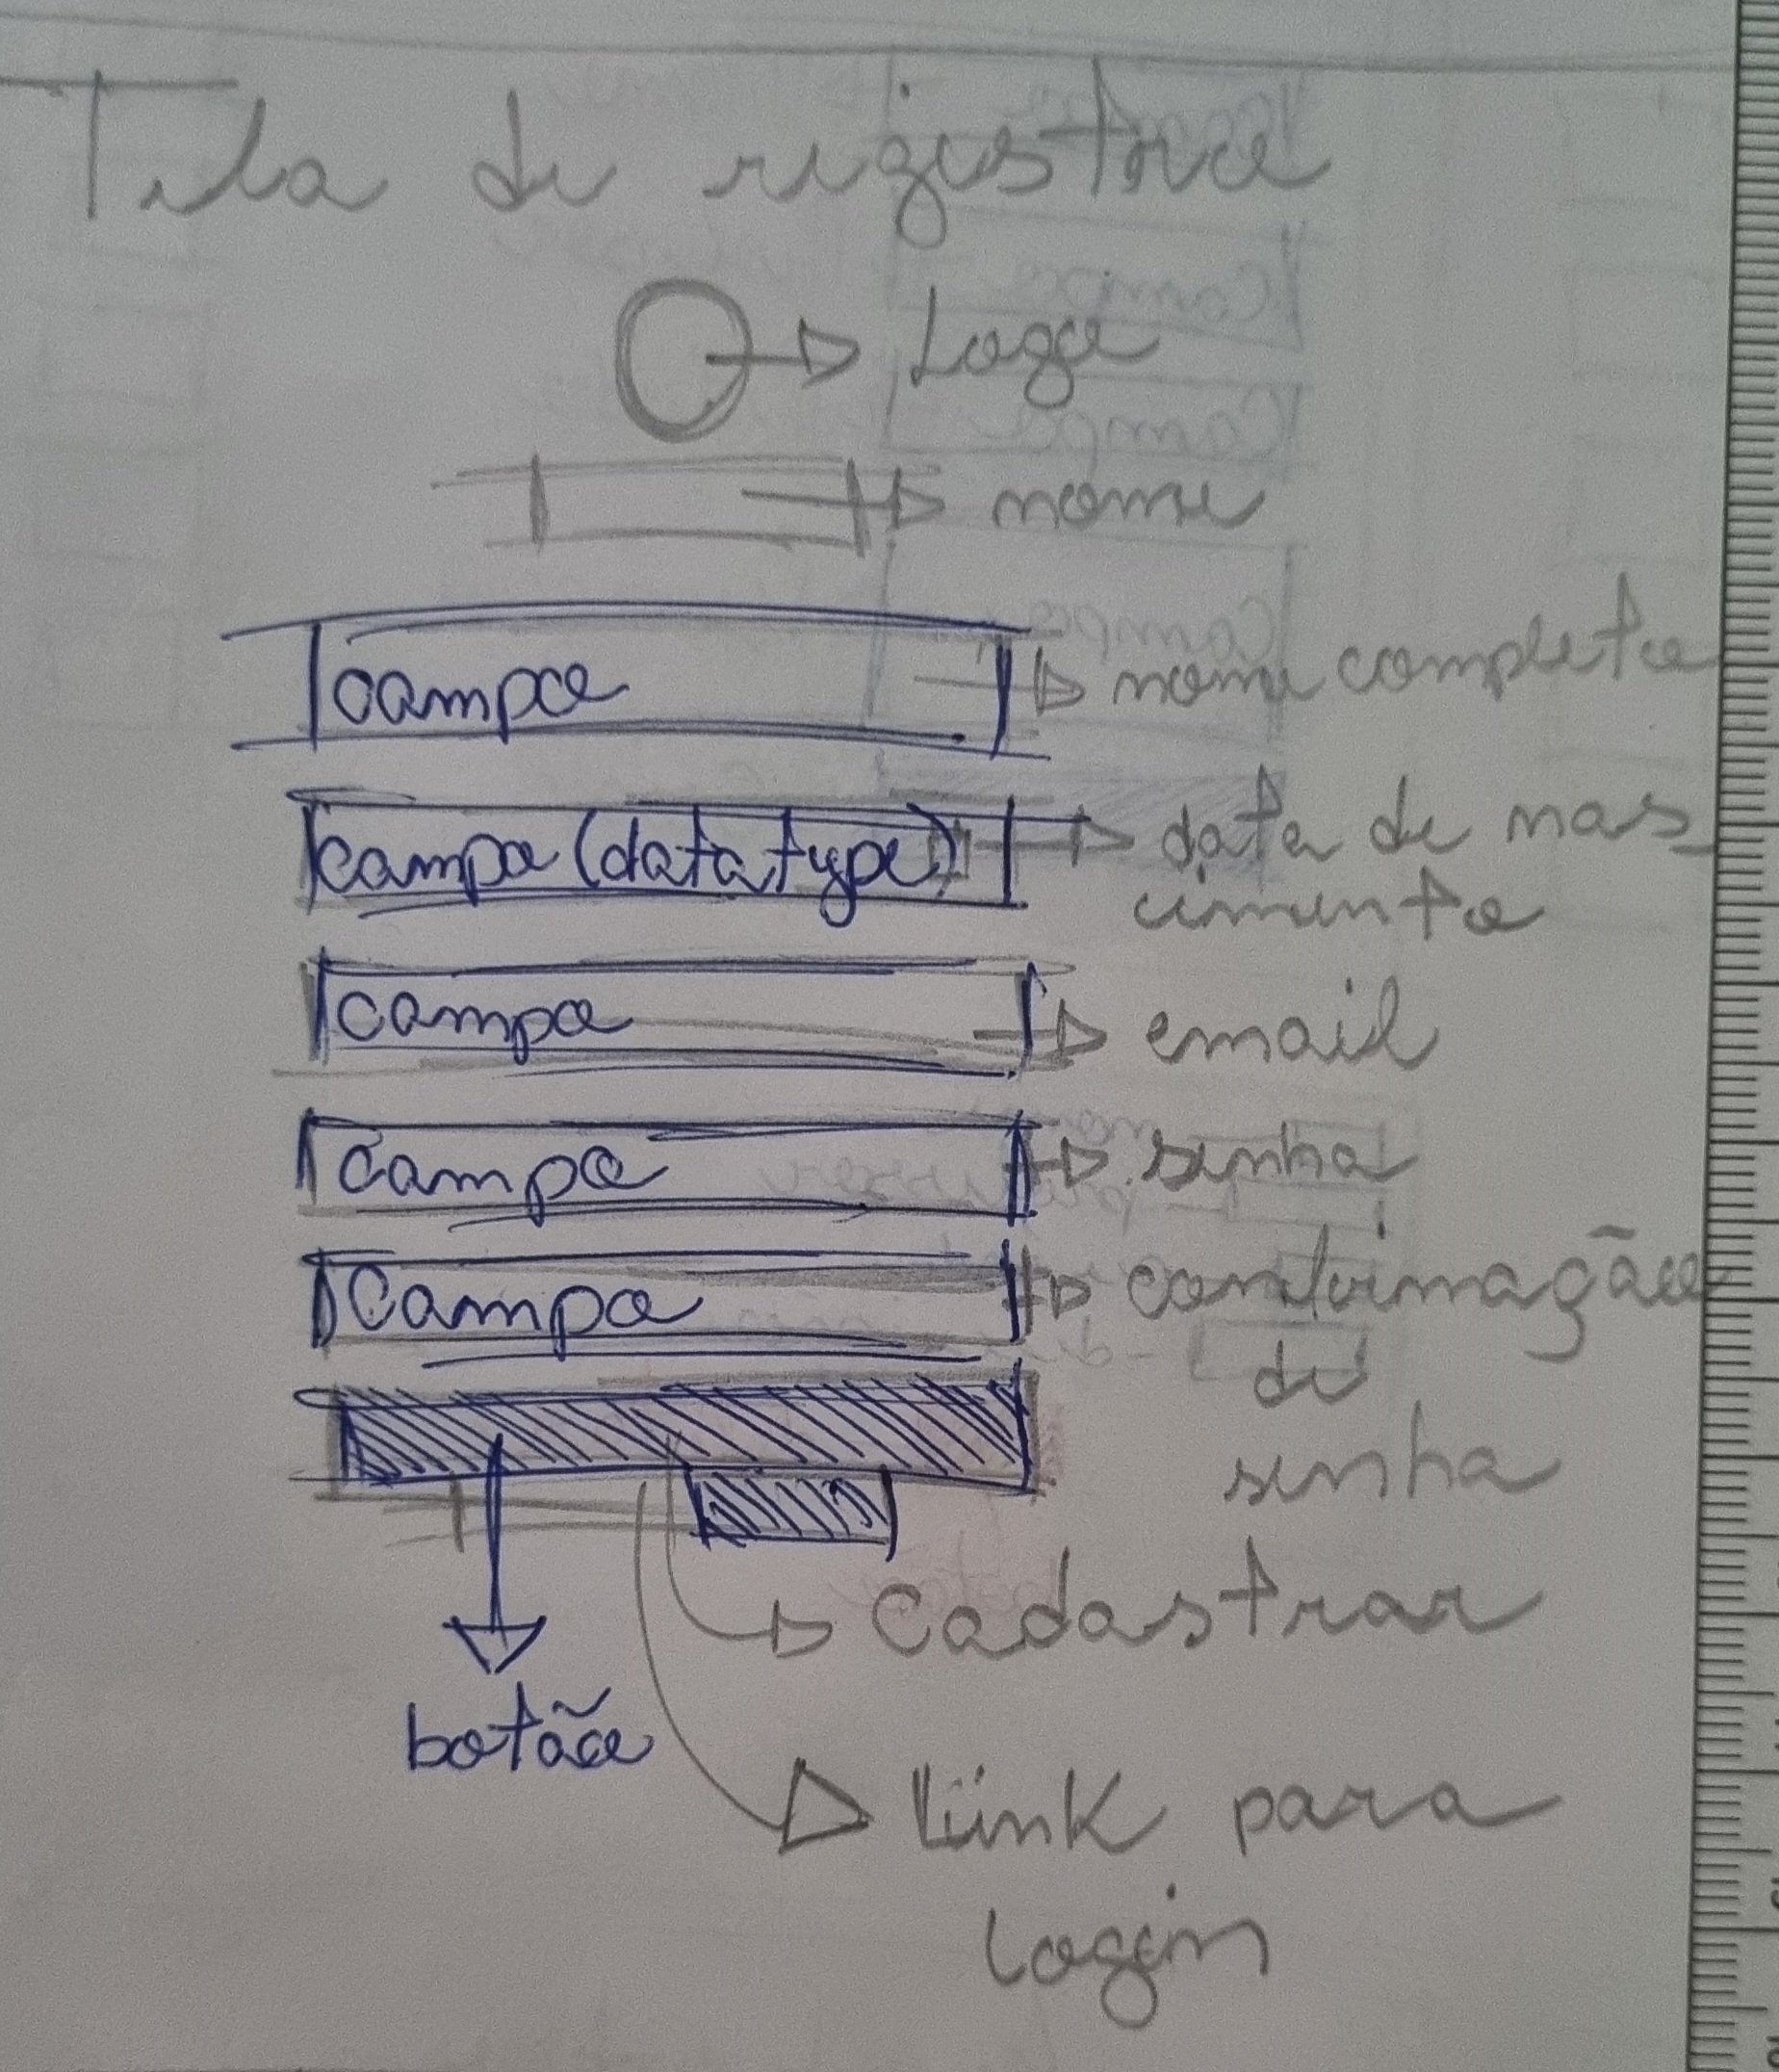 Tela de registro
Logo
nome
campo
nome completo
campo (data type)
data de nas_
cimento
campo
email
campo
senha
campo
confirmação
de
senha
Cadastrar
botão
Link para
login